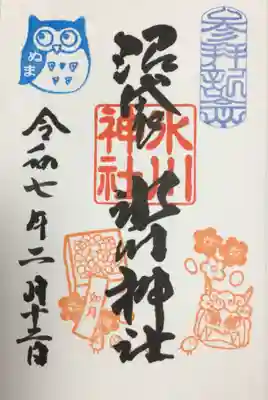 参拝記念
沼袋氷川神社
氷川神社
ぬま
令和七年二月十三日
如月